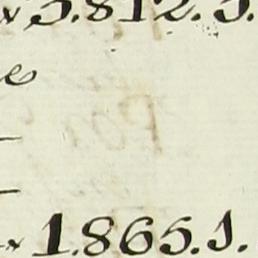 5.812.5.
e
1.865.1.